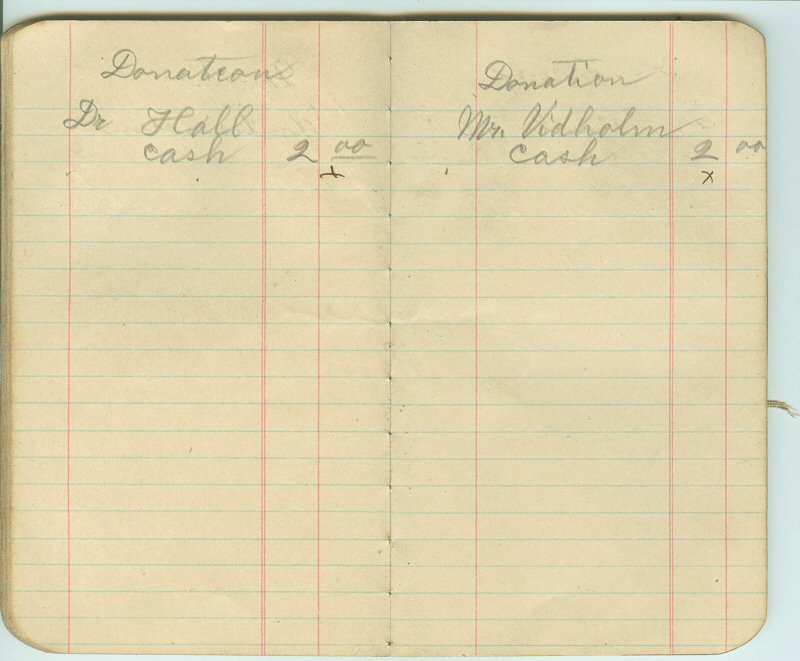 Donation
Dr Hall
cash 2 00
x
Donation
Mr. Vidholm
cash 2 00
x